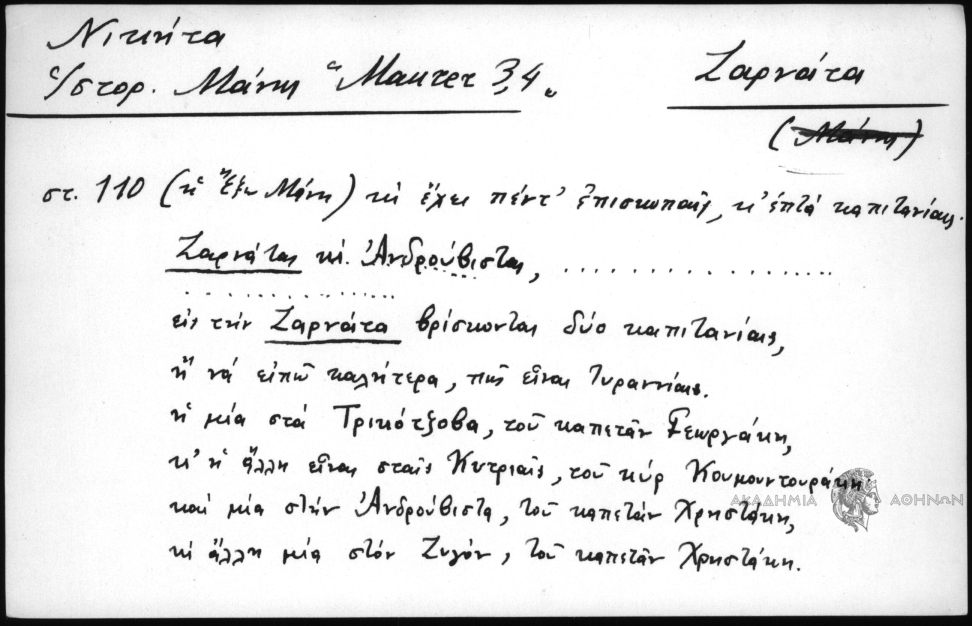 Νικήτα
Ἱστορ. Μάνης "Μακτρτ 3,4"
Ζαρνάτα
(Μάνης)
στ. 110 (ἡ Ἔξω Μάνη) κἰ ἔχει πέντ' ἐπισκοπαῖς, κ' ἑπτά καπιτανίαις.
Ζαρνάτας κἰ Ἀνδρούβιστας, ....................
....................
εἰς τήν Ζαρνάτα βρίσκονται δύο καπιτανίαις,
ἤ νά εἰπῶ καλήτερα, πῶς εἶναι τυραννίαις.
ἡ μία στά Τρικότζοβα, τοῦ καπετάν Γεωργάκη,
κ' ἡ ἄλλη εἶναι σταῖς Κυτριαῖς, τοῦ κύρ Κουμουντουράκη
καί μία στήν Ἀνδρούβιστα, τοῦ καπετάν Χρηστάκη,
κἰ ἄλλη μία στόν Ζυγόν, τοῦ καπετάν Χρηστάκη.
ΑΚΑΔΗΜΙΑ ΑΘΗΝΩΝ